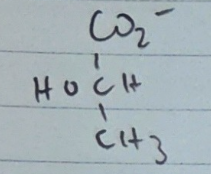 CO₂⁻
HOCH
CH₃